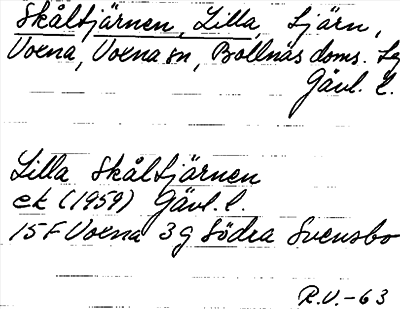 Skåltjärnen, Lilla, tjärn,
Voxna, Voxna sn, Bollnäs doms. lg
Gävl. l.
Lilla Skåltjärnen
ek (1959) Gävl. l.
15 F Voxna 3 g Södra Svensbo
R.V.-63